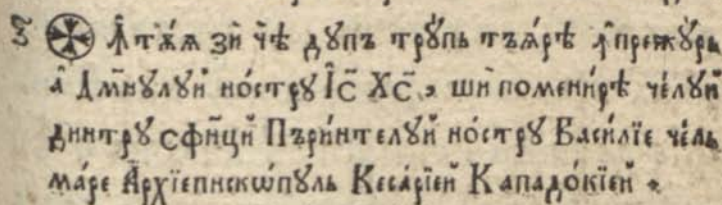 ҂ ⊕ Ꙟтѫѧ зй ч҃ѐ дꙋпъ трꙋ́пь тъѧ́рѣ ꙟ҆прежꙋ́рь
а҆ Дмⷩ҇ꙋлꙋй но́стрꙋ І҆с҃ Хс҃, ши помени́рѣ че́лꙋй
динтрꙋ сфи́нци Пъри́нтелꙋй но́стрꙋ Васи́лїе че́ль
ма́ре А҆рхїепискѡ́пꙋль Кеса́рїей Кападо́кїей .